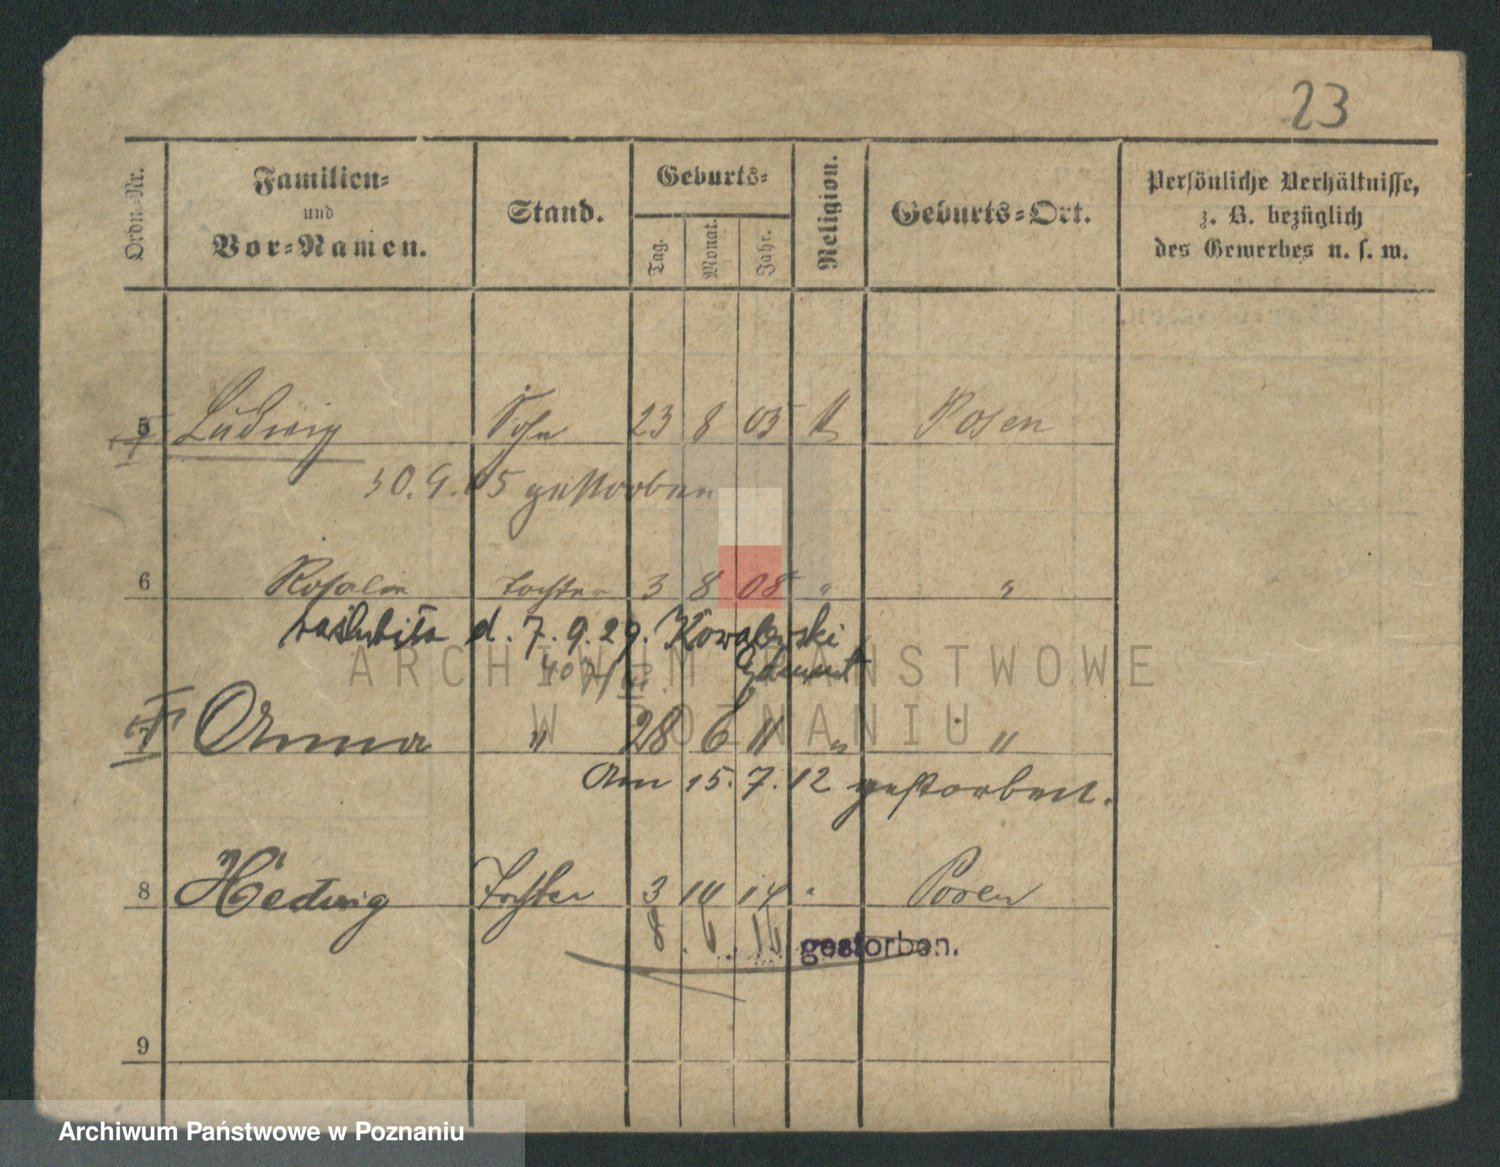 23
Ordn.-Nr. Familien- und Vor-Namen. Stand. Geburts- Tag. Monat. Jahr. Religion. Geburts-Ort. Persönliche Verhältnisse, z. B. bezüglich des Gewerbes u. s. w.
5 Ludwig Sohn 23 8 05 K Posen
30. 9. 05 gestorben
6 Rosalie Tochter 3 8 08 " "
zaślubiła d. 7. 9. 29. Kowalewski
Edmund
7 Anna " 28 6 11 " "
Am 15. 7. 12 gestorben.
8 Hedwig Tochter 3 10 14 " Posen
8. 6. 16 gestorben.
9
ARCHIWUM PAŃSTWOWE
W POZNANIU
Archiwum Państwowe w Poznaniu